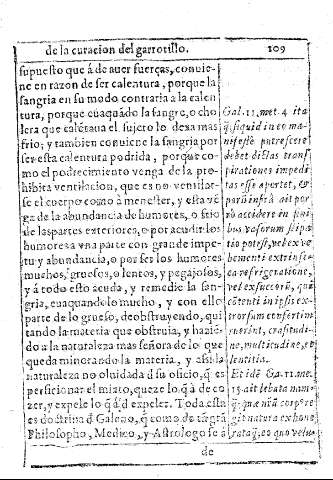 de la curacion del garrotillo. 109
supuesto que á de auer fuerças, conuie-
ne en razon de ser calentura, porque la
sangria en su modo contraria a la calen
tura, porque euaquãdo la sangre, o cho
lera que calẽtaua el sujeto lo dexa mas
frio; y tambien conuiene la sangria por
ser esta calentura podrida, porque co-
mo el podrecimiento venga de la pro-
hibita ventilacion, que es no ventilar-
se el cuerpo como à menester, y esta vẽ
ga de la abundancia de humores, o frio
de las partes exteriores, o por acudir los
humores a vna parte con grande impe-
tu y abundancia, o por ser los humores
muchos, gruesos, o lentos, y pegajosos,
y á todo esto acuda, y remedie la san-
gria, euaquando lo mucho, y con ello
parte de lo grueso, deobstruyendo, qui
tando la materia que obstruia, y haziẽ-
do a la naturaleza mas señora de lo que
queda minorando la materia, y assi la
naturaleza no oluidada d su oficio, q̃ es
perficionar el mixto, queze lo q̃ á de co
zer, y expele lo q̃ á d expeler. Toda esta
es doctrina d Galeno, q̃ como de tã grã
Philosopho, Medico, y Astrologo se à
de
Gal. 11. met. 4 ita
q̃, siquid in eo ma
nifestè putrescere
debet dictas trans
pirationes impedi
tas esse apertet, &
parũ infrà ait por
rò accidere in fini
bus vasorum stipa
tio potest, vel ex ve
hementi extrinse-
ca refrigeratione,
vel ex succorũ, qui
cõtenti in ipsis ex-
trorsum confertim
ruerint, crasitudi-
ne, multitudine, et
lentitia.
Et idẽ Ga. 11. me.
15. ait lebata nam
q̃; quæ nr̃ũ corpus
git natura exhone
rataq̃; eo quo velu-